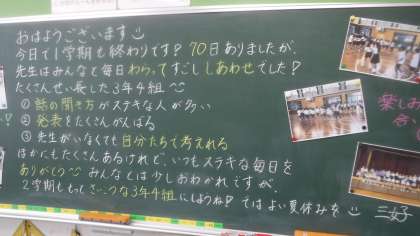 おはようございます
今日で1学期も終わりです? 70日ありましたが、
先生はみんなと毎日わらってすごししあわせでした?
たくさんせい長した3年4組〜
① 話の聞き方がステキな人が多い
② 発表をたくさんがんばる
③ 先生がいなくても自分たちで考えれる
ほかにもたくさんあるけれど、いつもステキな毎日を
ありがとう みんなとは少しおわかれですが、
2学期ももっとさいこうな3年4組にしようね? ではよい夏休みを
三好
楽し
合い